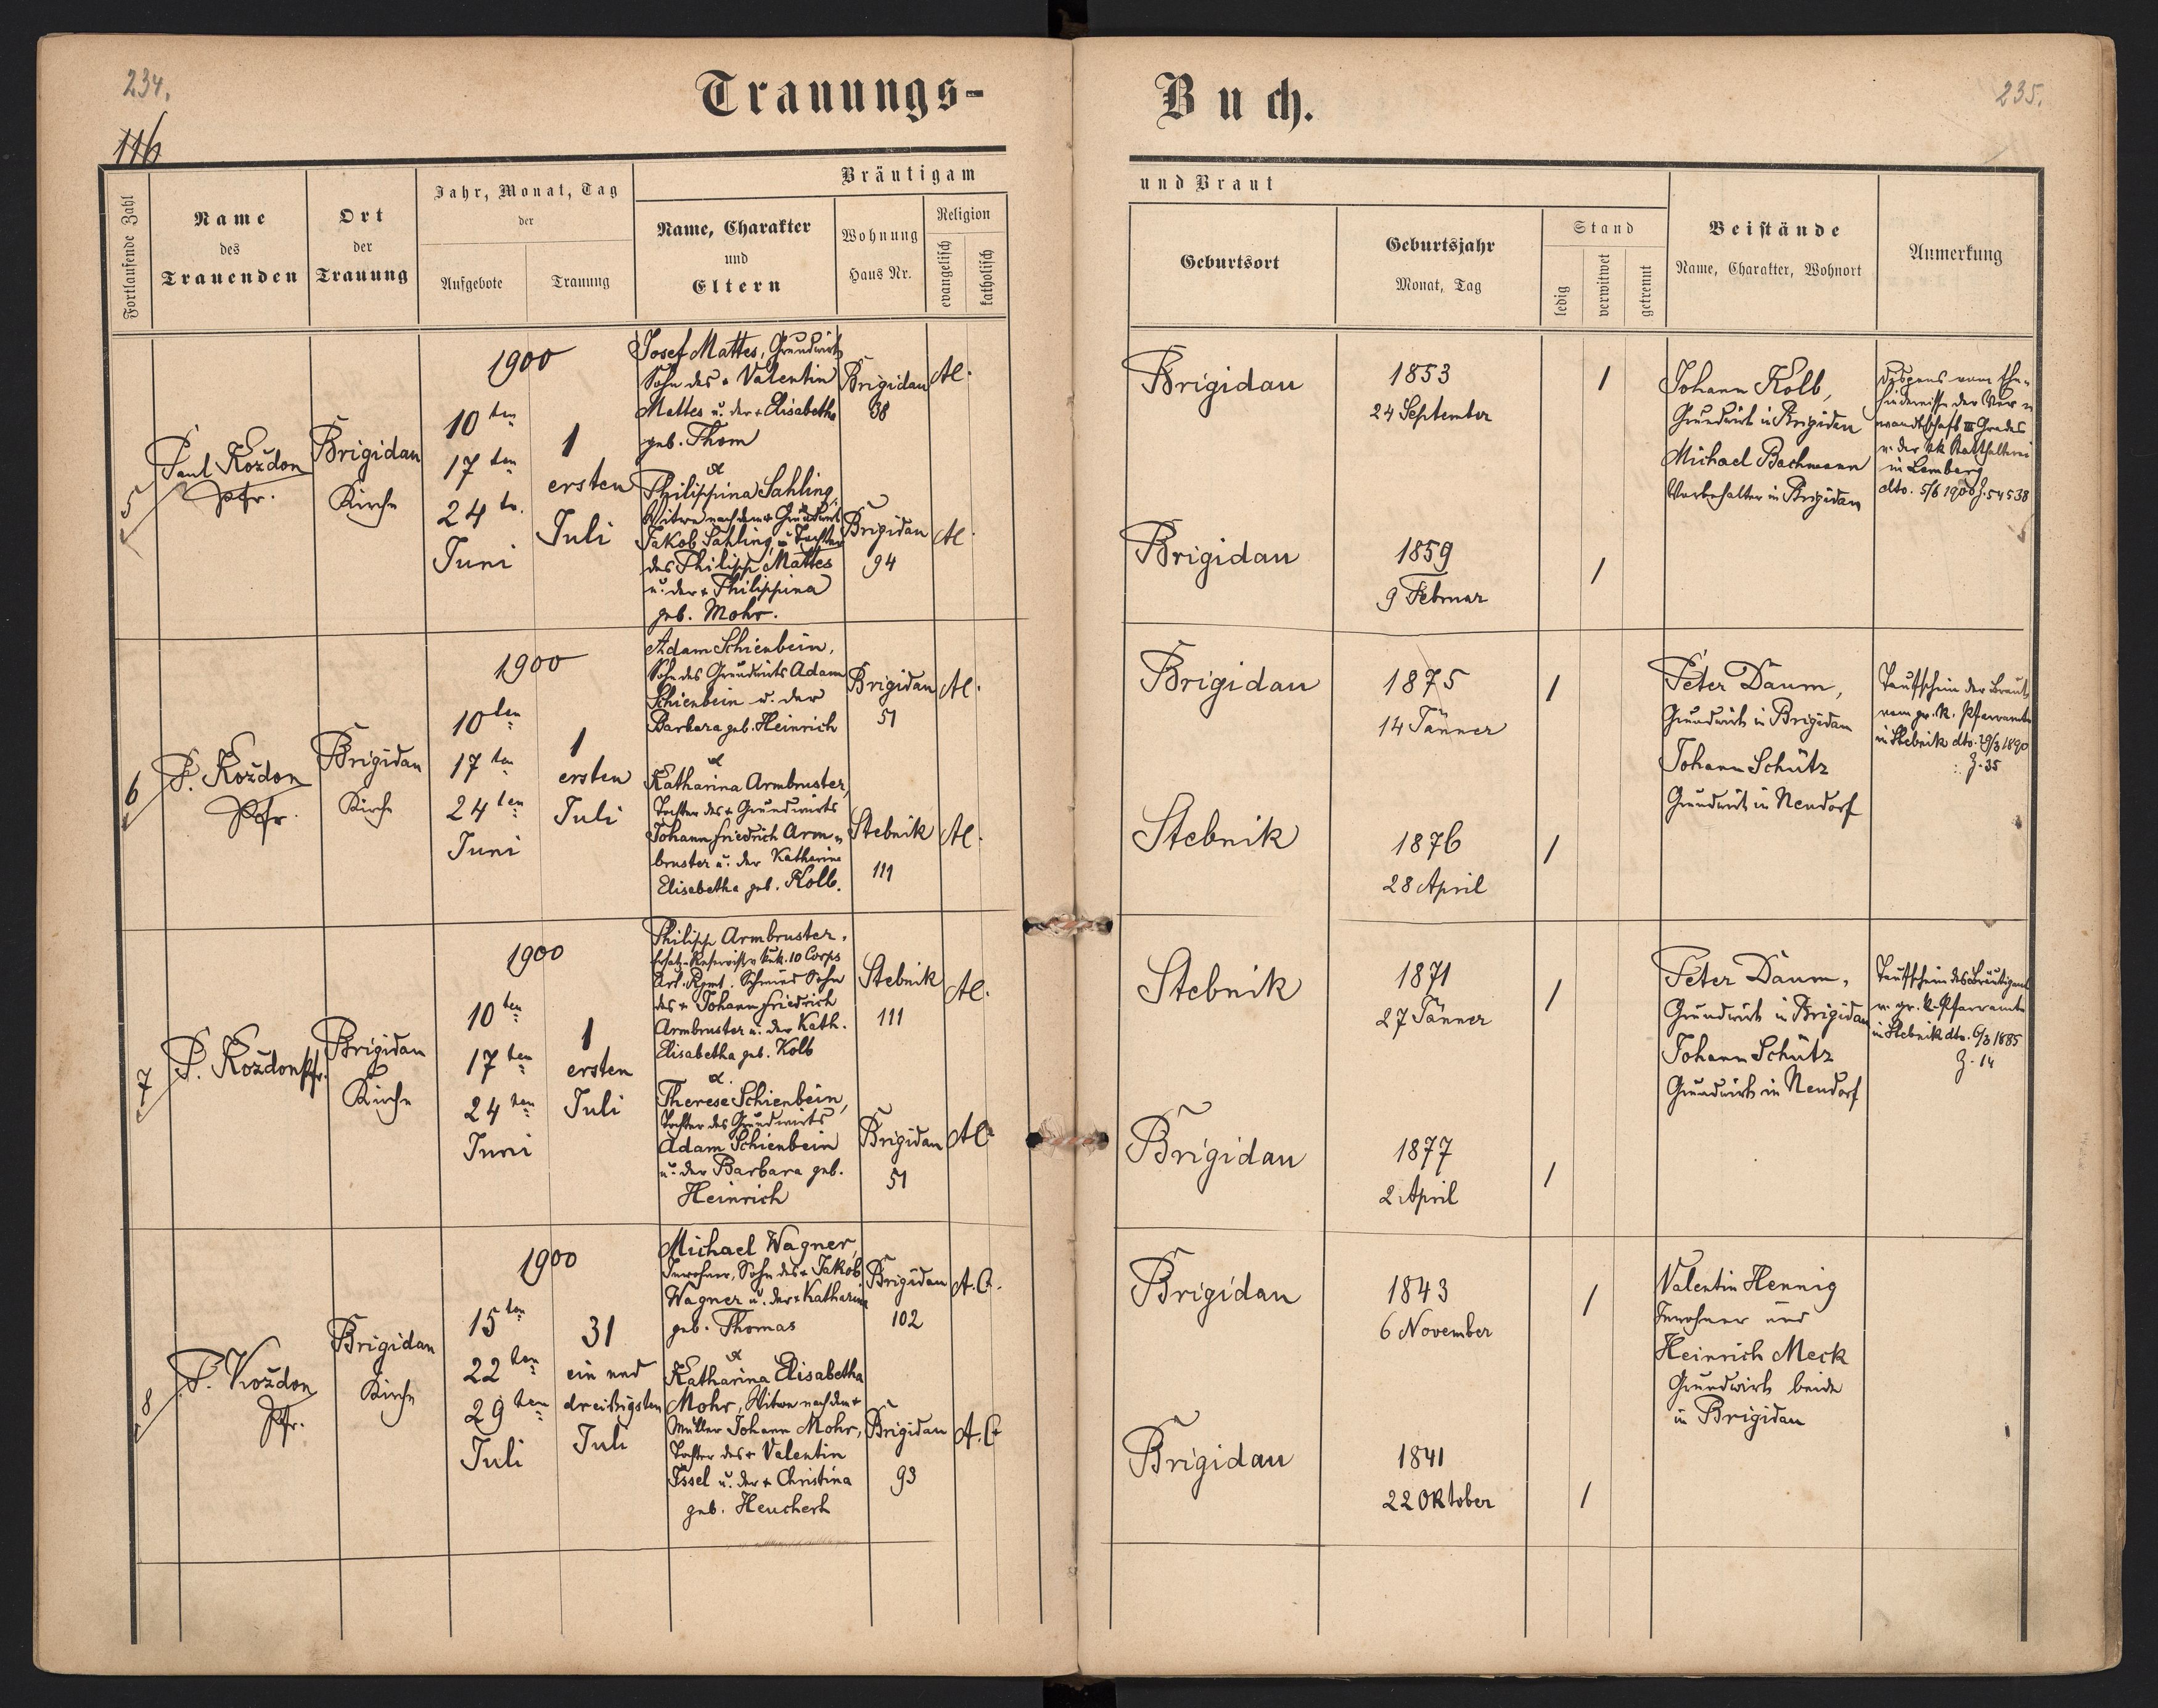 234.
116
Trauungs-
Buch.
235.
Fortlaufende Zahl
Name
des
Trauenden
Ort
der
Trauung
Jahr, Monat, Tag
der
Aufgebote
Trauung
Bräutigam
Name, Charakter
und
Eltern
Wohnung
Haus Nr.
Religion
evangelisch
katholisch
und Braut
Geburtsort
Geburtsjahr
Monat, Tag
Stand
ledig
verwitwet
getrennt
Beistände
Name, Charakter, Wohnort
Anmerkung
5
Paul Kożdon
Pfr.
Brigidau
Kirche
1900
10ten
17ten
24te.
Juni
1
ersten
Juli
Josef Mattes, Grundwirth
Sohn des + Valentin
Mattes u. der + Elisabetha
geb. Thom
&
Philippina Sahling,
Witwe nach dem + Grundwirt
Jakob Sahling, u. Tochter
des Philipp Mattes
u. der + Philippina
geb. Mohr.
Brigidau
38
Brigidau
94
AC.
AC.
Brigidau
Brigidau
1853
24 September
1859
9 Februar
/
/
Johann Kolb,
Grundwirt in Brigidau
Michael Bachmann
Vorbehalter in Brigidau
Dispens vom Ehe-
hindernisse der Ver-
wandtschaft III Grades
v. der kk Statthalterei
in Lemberg
dto. 5/6 1900 Z. 54538
6
P. Kożdon
Pfr.
Brigidau
Kirche
1900
10ten
17ten
24ten
Juni
1
ersten
Juli
Adam Schienbein,
Sohn des Grundwirts Adam
Schienbein u. der
Barbara geb. Heinrich
&
Katharina Armbruster,
Tochter des + Grundwirts
Johann Friedrich Arm-
bruster u. der Katharina
Elisabetha geb. Kolb.
Brigidau
51
Stebnik
111
AC.
AC.
Brigidau
Stebnik
1875
14 Jänner
1876
28 April
/
/
Peter Daum,
Grundwirt in Brigidau
Johann Schütz
Grundwirt in Neudorf
Taufschein der Braut
vom gr. k. Pfarramte
in Stebnik dto. 29/3 1890
Z. 35
7
P. Kożdon Pfr.
Brigidau
Kirche
1900
10ten
17ten
24ten
Juni
1
ersten
Juli
Philipp Armbruster,
Ersatz-Reservist v. k.u.k. 10 Corps
Art. Rgmt. Schmied Sohn
des + Johann Friedrich
Armbruster u. der Kath.
Elisabetha geb. Kolb
&.
Therese Schienbein,
Tochter des Grundwirts
Adam Schienbein
u. der Barbara geb.
Heinrich
Stebnik
111
Brigidau
51
AC.
AC.
Stebnik
Brigidau
1871
27 Jänner
1877
2 April
/
/
Peter Daum,
Grundwirt in Brigidau
Johann Schütz
Grundwirt in Neudorf
Taufschein des Bräutigams
v. gr. k. Pfarramte
in Stebnik dto. 6/3 1885
Z. 14
8
P. Kożdon
Pfr.
Brigidau
Kirche
1900
15ten
22ten
29ten
Juli
31
ein und
dreißigsten
Juli
Michael Wagner,
Inwohner, Sohn des + Jakob
Wagner u. der + Katharina
geb. Thomas
&
Katharina Elisabetha
Mohr, Witwe nach dem +
Müller Johann Mohr,
Tochter des + Valentin
Issel u. der + Christina
geb. Heuchert
Brigidau
102
Brigidau
93
A.C.
A.C.
Brigidau
Brigidau
1843
6 November
1841
22 Oktober
/
/
Valentin Hennig
Inwohner und
Heinrich Meck
Grundwirt beide
in Brigidau